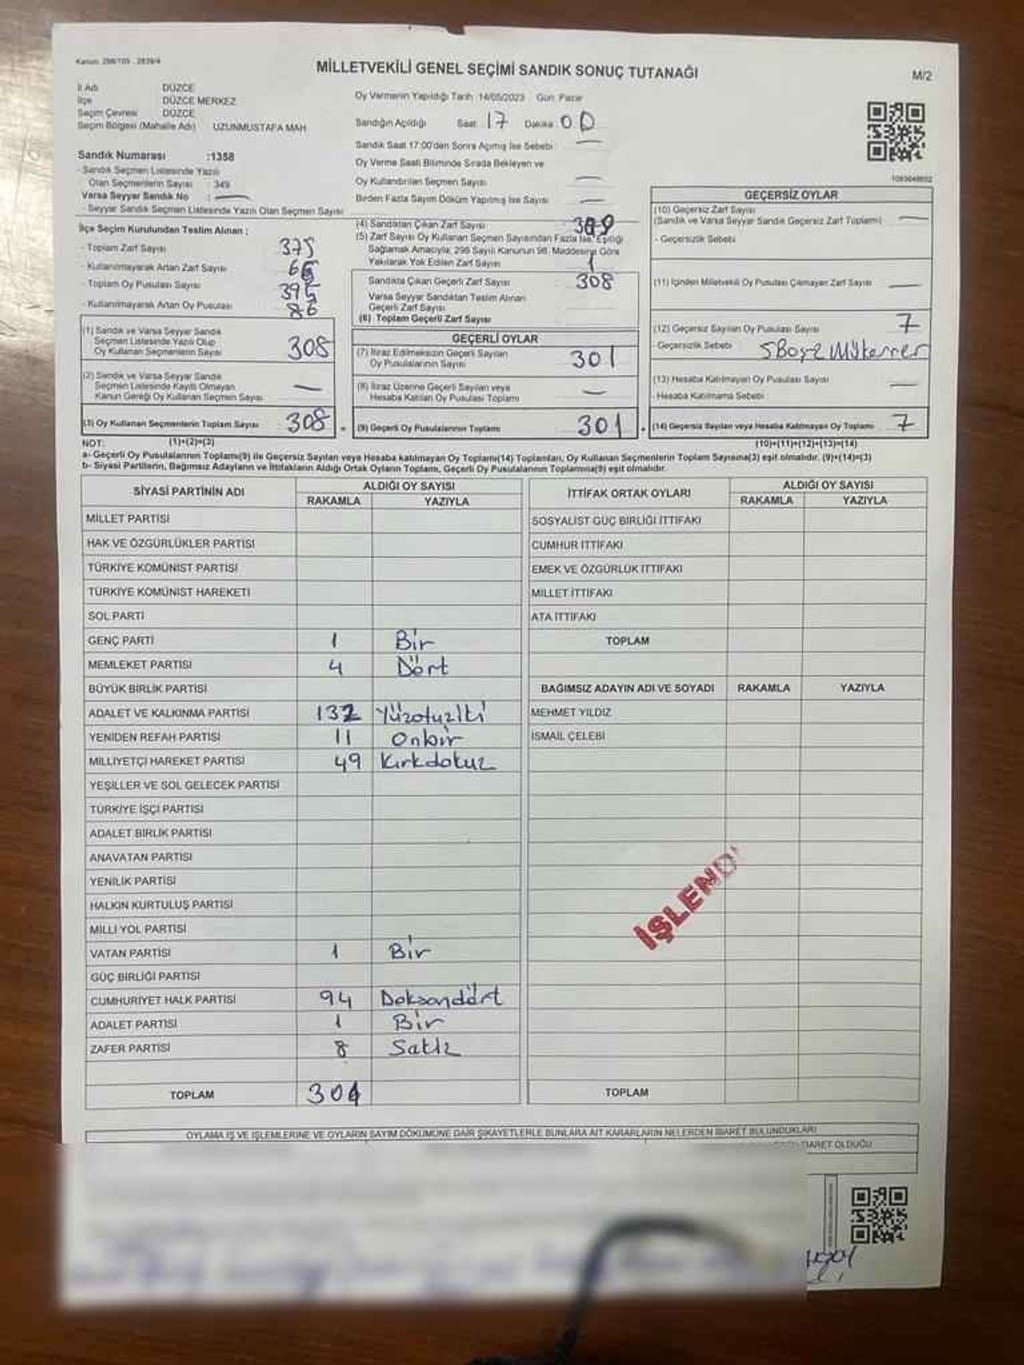 Kanun: 298/105 - 2839/4
MİLLETVEKİLİ GENEL SEÇİMİ SANDIK SONUÇ TUTANAĞI
M/2
İl Adı DÜZCE
İlçe DÜZCE MERKEZ
Seçim Çevresi DÜZCE
Seçim Bölgesi (Mahalle Adı) UZUNMUSTAFA MAH
Sandık Numarası :1358
- Sandık Seçmen Listesinde Yazılı
Olan Seçmenlerin Sayısı : 349
Varsa Seyyar Sandık No :
- Seyyar Sandık Seçmen Listesinde Yazılı Olan Seçmen Sayısı
Oy Vermenin Yapıldığı Tarih 14/05/2023 Gün: Pazar
Sandığın Açıldığı Saat: 17 Dakika: 00
Sandık Saat 17:00'den Sonra Açılmış İse Sebebi
Oy Verme Saati Bitiminde Sırada Bekleyen ve
Oy Kullandırılan Seçmen Sayısı
Birden Fazla Sayım Döküm Yapılmış İse Sayısı
İlçe Seçim Kurulundan Teslim Alınan ;
- Toplam Zarf Sayısı 375
- Kullanılmayarak Artan Zarf Sayısı
- Toplam Oy Pusulası Sayısı 395
- Kullanılmayarak Artan Oy Pusulası 86
(1) Sandık ve Varsa Seyyar Sandık
Seçmen Listesinde Yazılı Olup
Oy Kullanan Seçmenlerin Sayısı 308
(2) Sandık ve Varsa Seyyar Sandık
Seçmen Listesinde Kayıtlı Olmayan
Kanun Gereği Oy Kullanan Seçmen Sayısı
(3) Oy Kullanan Seçmenlerin Toplam Sayısı 308
(4) Sandıktan Çıkan Zarf Sayısı 309
(5) Zarf Sayısı Oy Kullanan Seçmen Sayısından Fazla İse, Eşitliği
Sağlamak Amacıyla, 298 Sayılı Kanunun 98. Maddesine Göre
Yakılarak Yok Edilen Zarf Sayısı 1
Sandıkta Çıkan Geçerli Zarf Sayısı 308
Varsa Seyyar Sandıktan Teslim Alınan
Geçerli Zarf Sayısı
(6) Toplam Geçerli Zarf Sayısı
GEÇERLİ OYLAR
(7) İtiraz Edilmeksizin Geçerli Sayılan
Oy Pusulalarının Sayısı 301
(8) İtiraz Üzerine Geçerli Sayılan veya
Hesaba Katılan Oy Pusulası Toplamı
(9) Geçerli Oy Pusulalarının Toplamı 301
GEÇERSİZ OYLAR
(10) Geçersiz Zarf Sayısı
(Sandık ve Varsa Seyyar Sandık Geçersiz Zarf Toplamı)
- Geçersizlik Sebebi
(11) İçinden Milletvekili Oy Pusulası Çıkmayan Zarf Sayısı
(12) Geçersiz Sayılan Oy Pusulası Sayısı 7
- Geçersizlik Sebebi
(13) Hesaba Katılmayan Oy Pusulası Sayısı
- Hesaba Katılmama Sebebi
(14) Geçersiz Sayılan veya Hesaba Katılmayan Oy Toplamı 7
NOT: (1)+(2)=(3) (10)+(11)+(12)+(13)=(14)
a- Geçerli Oy Pusulalarının Toplamı(9) ile Geçersiz Sayılan veya Hesaba katılmayan Oy Toplamı(14) Toplamları, Oy Kullanan Seçmenlerin Toplam Sayısına(3) eşit olmalıdır. (9)+(14)=(3)
b- Siyasi Partilerin, Bağımsız Adayların ve İttifakların Aldığı Ortak Oyların Toplamı, Geçerli Oy Pusulalarının Toplamına(9) eşit olmalıdır.
SİYASİ PARTİNİN ADI ALDIĞI OY SAYISI
RAKAMLA YAZIYLA
MİLLET PARTİSİ
HAK VE ÖZGÜRLÜKLER PARTİSİ
TÜRKİYE KOMÜNİST PARTİSİ
TÜRKİYE KOMÜNİST HAREKETİ
SOL PARTİ
GENÇ PARTİ 1 Bir
MEMLEKET PARTİSİ 4 Dört
BÜYÜK BİRLİK PARTİSİ
ADALET VE KALKINMA PARTİSİ 132 Yüzotuziki
YENİDEN REFAH PARTİSİ 11 Onbir
MİLLİYETÇİ HAREKET PARTİSİ 49 Kırkdokuz
YEŞİLLER VE SOL GELECEK PARTİSİ
TÜRKİYE İŞÇİ PARTİSİ
ADALET BİRLİK PARTİSİ
ANAVATAN PARTİSİ
YENİLİK PARTİSİ
HALKIN KURTULUŞ PARTİSİ
MİLLİ YOL PARTİSİ
VATAN PARTİSİ 1 Bir
GÜÇ BİRLİĞİ PARTİSİ
CUMHURİYET HALK PARTİSİ 94 Doksandört
ADALET PARTİSİ 1 Bir
ZAFER PARTİSİ 8 Sekiz
TOPLAM 301
İTTİFAK ORTAK OYLARI ALDIĞI OY SAYISI
RAKAMLA YAZIYLA
SOSYALİST GÜÇ BİRLİĞİ İTTİFAKI
CUMHUR İTTİFAKI
EMEK VE ÖZGÜRLÜK İTTİFAKI
MİLLET İTTİFAKI
ATA İTTİFAKI
TOPLAM
BAĞIMSIZ ADAYIN ADI VE SOYADI RAKAMLA YAZIYLA
MEHMET YILDIZ
İSMAİL ÇELEBİ
İŞLENDİ
TOPLAM
OYLAMA İŞ VE İŞLEMLERİNE VE OYLARIN SAYIM DÖKÜMÜNE DAİR ŞİKAYETLERLE BUNLARA AİT KARARLARIN NELERDEN İBARET BULUNDUKLARI